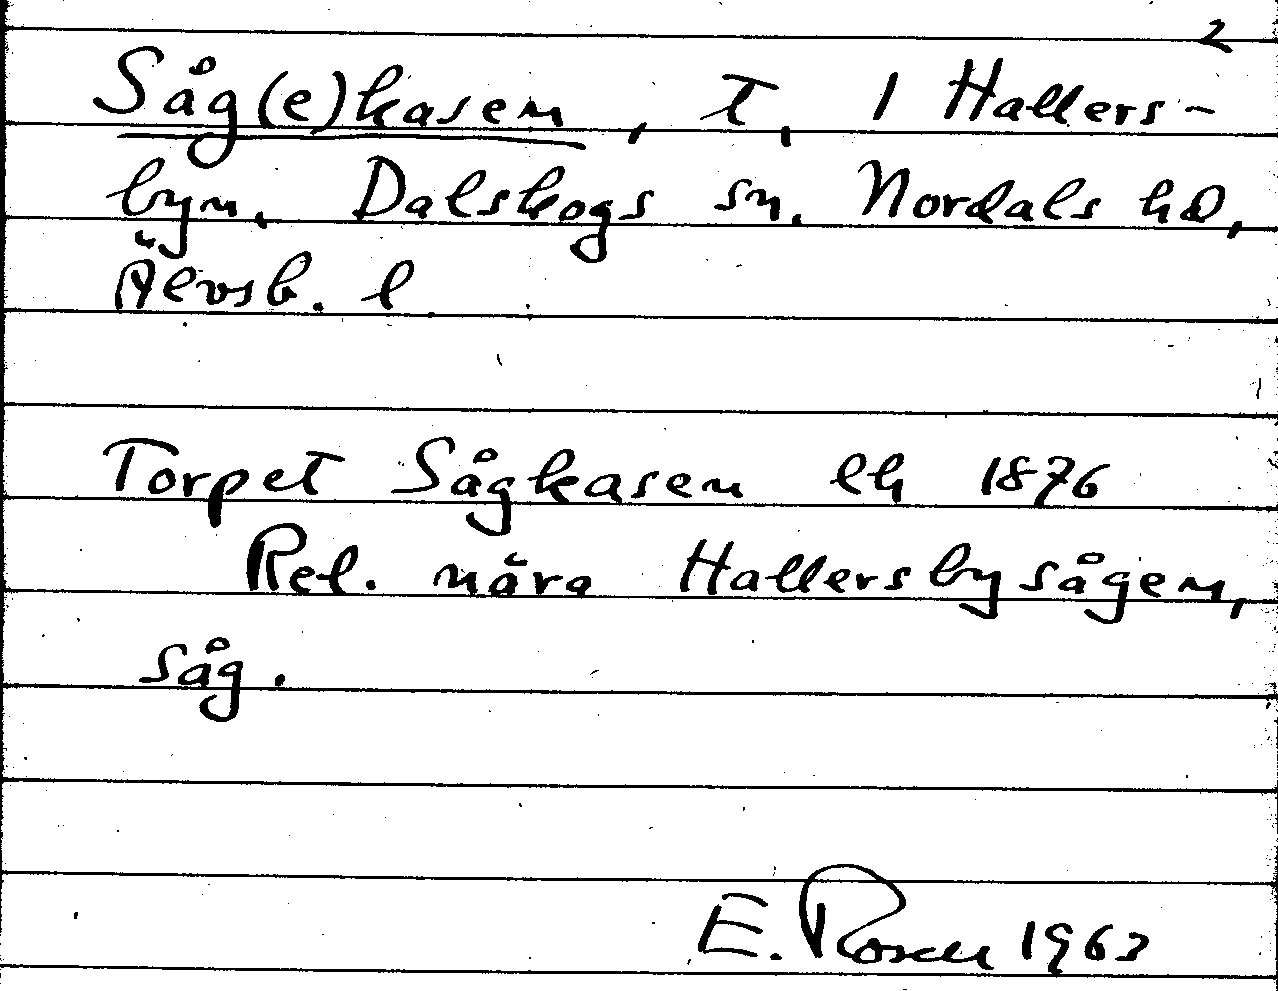 2
Såg(e)kasen, t, 1 Hallers-
byn, Dalskogs sn. Nordals hd,
Älvsb. l
Torpet Sågkasen lh 1876
Rel. nära Hallersbysågen,
såg.
E. Rosell 1963